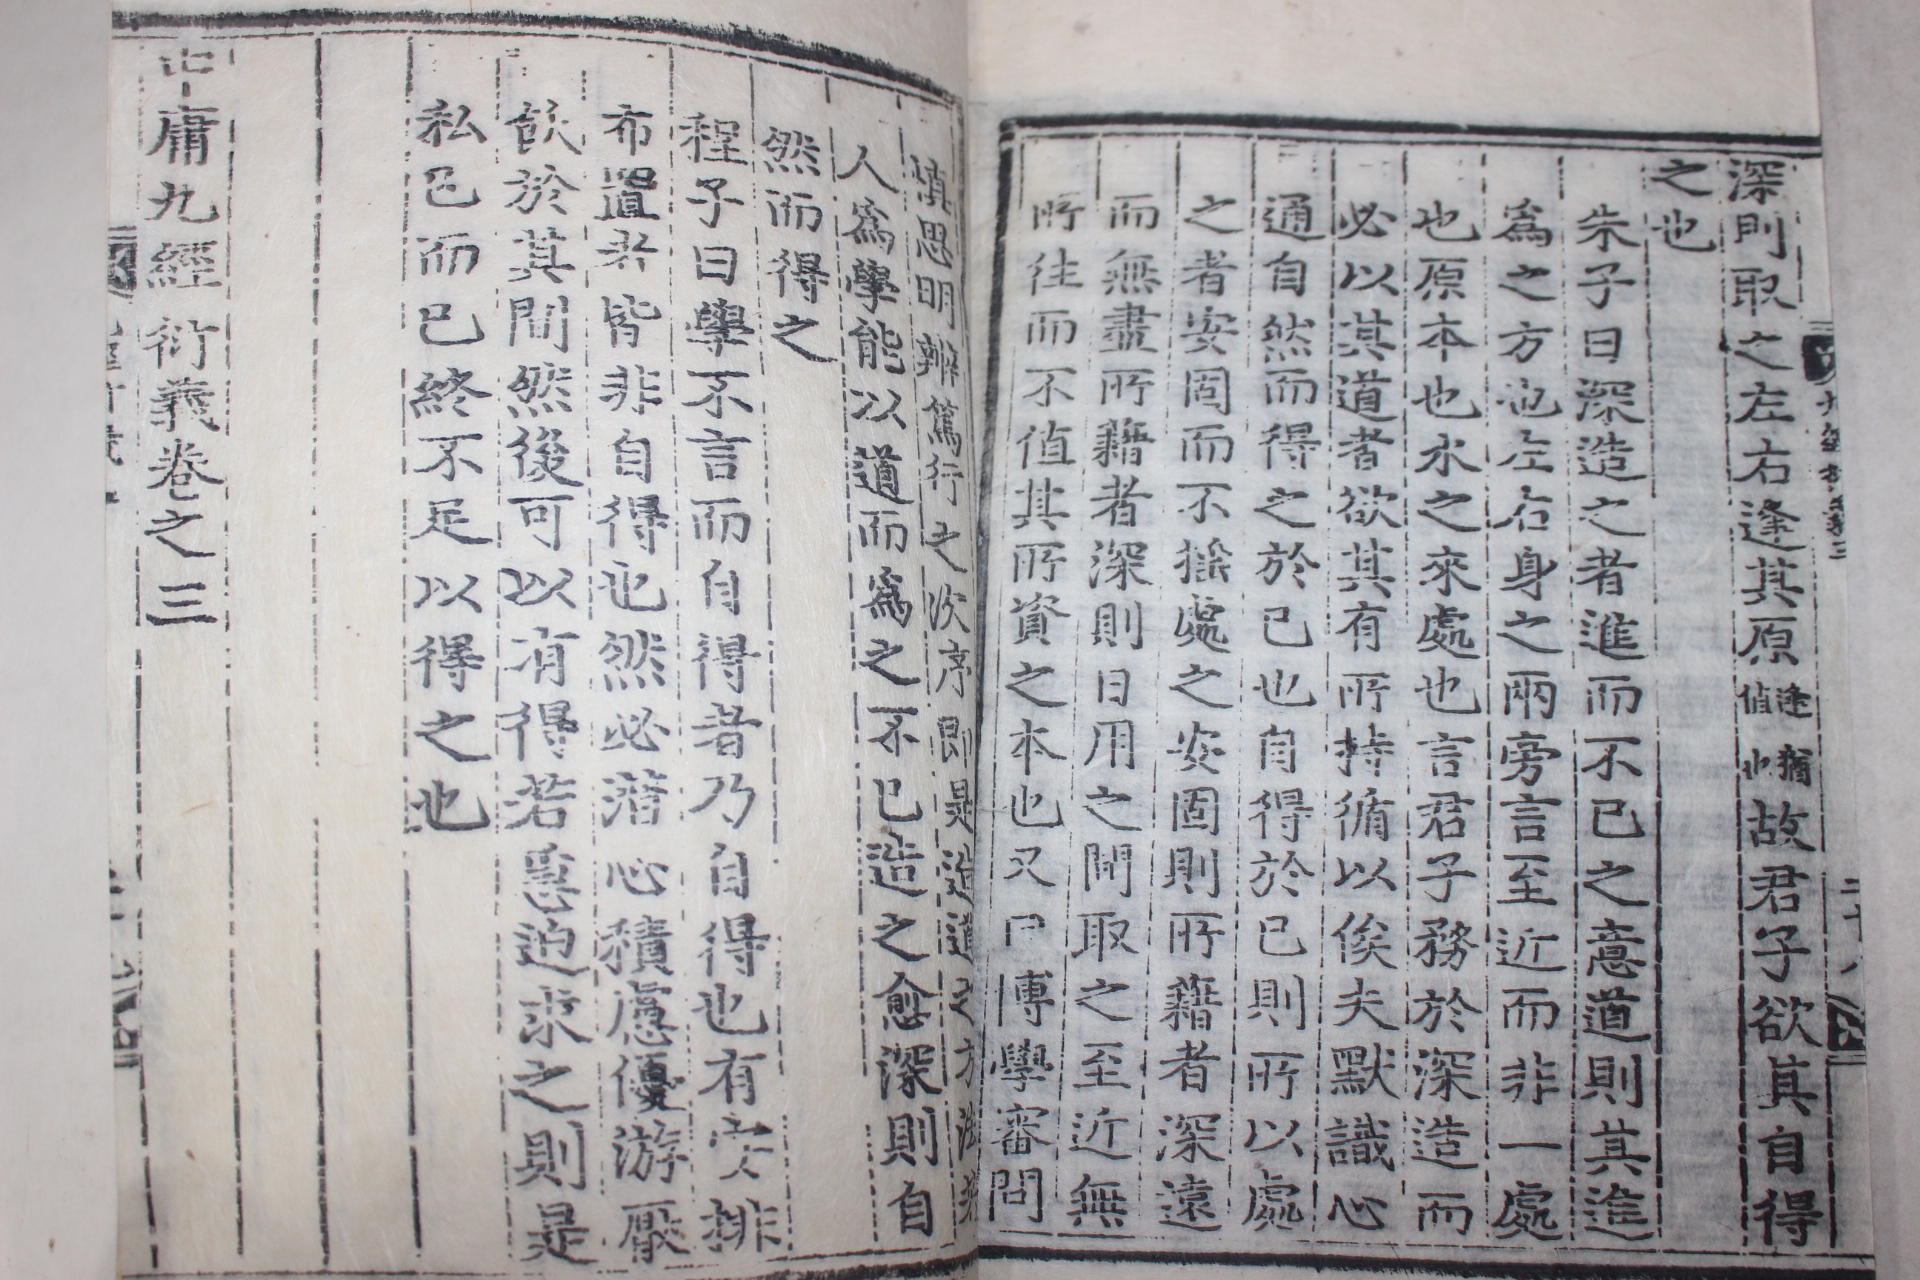 深則取之左右逢其原逢猶值也故君子欲其自得
之也
朱子曰深造之者進而不已之意道則其進
爲之方也左右身之兩旁言至近而非一處
也原本也水之來處也言君子務於深造而
必以其道者欲其有所持循以俟夫默識心
通自然而得之於己也自得於己則所以處
之者安固而不搖處之安固則所藉者深遠
而無盡所藉者深則日用之間取之至近無
所往而不值其所資之本也又曰博學審問
慎思明辨篤行之次序即是造道之方法若
人爲學能以道而爲之不已造之愈深則自
然而得之
程子曰學不言而自得者乃自得也有安排
布置者皆非自得也然必潛心積慮優游厭
飫於其間然後可以有得若急迫求之則是
私己而已終不足以得之也
中庸九經衍義卷之三